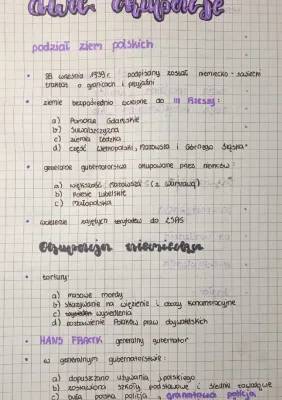 dwie okupacje
podział ziem polskich
28 września 1939 r. podpisany został niemiecko-sowiecki
traktat o granicach i przyjaźni
ziemie bezpośrednio wcielone do III Rzeszy:
a) Pomorze Gdańskie
b) Suwalszczyzna
c) ziemia łódzka
d) część Wielkopolski, Mazowsza i Górnego Śląska
generalne gubernatorstwo okupowane przez niemców:
a) większość Mazowsza (z Warszawą)
b)  Lubelskie
c) Małopolska
wcielenie zajętych terytoriów do ZSRS
Okupacja niemiecka
tortury:
a) masowe mordy
b) skazywanie na więzienie i obozy koncentracyjne
c) wysiedlenia
d) pozbawienie Polaków praw obywatelskich
HANS FRANK generalny gubernator
w generalnym gubernatorstwie:
a) dopuszczono używania j.polskiego
b) zostawiono szkoły podstawowe i średnie zawodowe
c) była polska policja granatowa policja